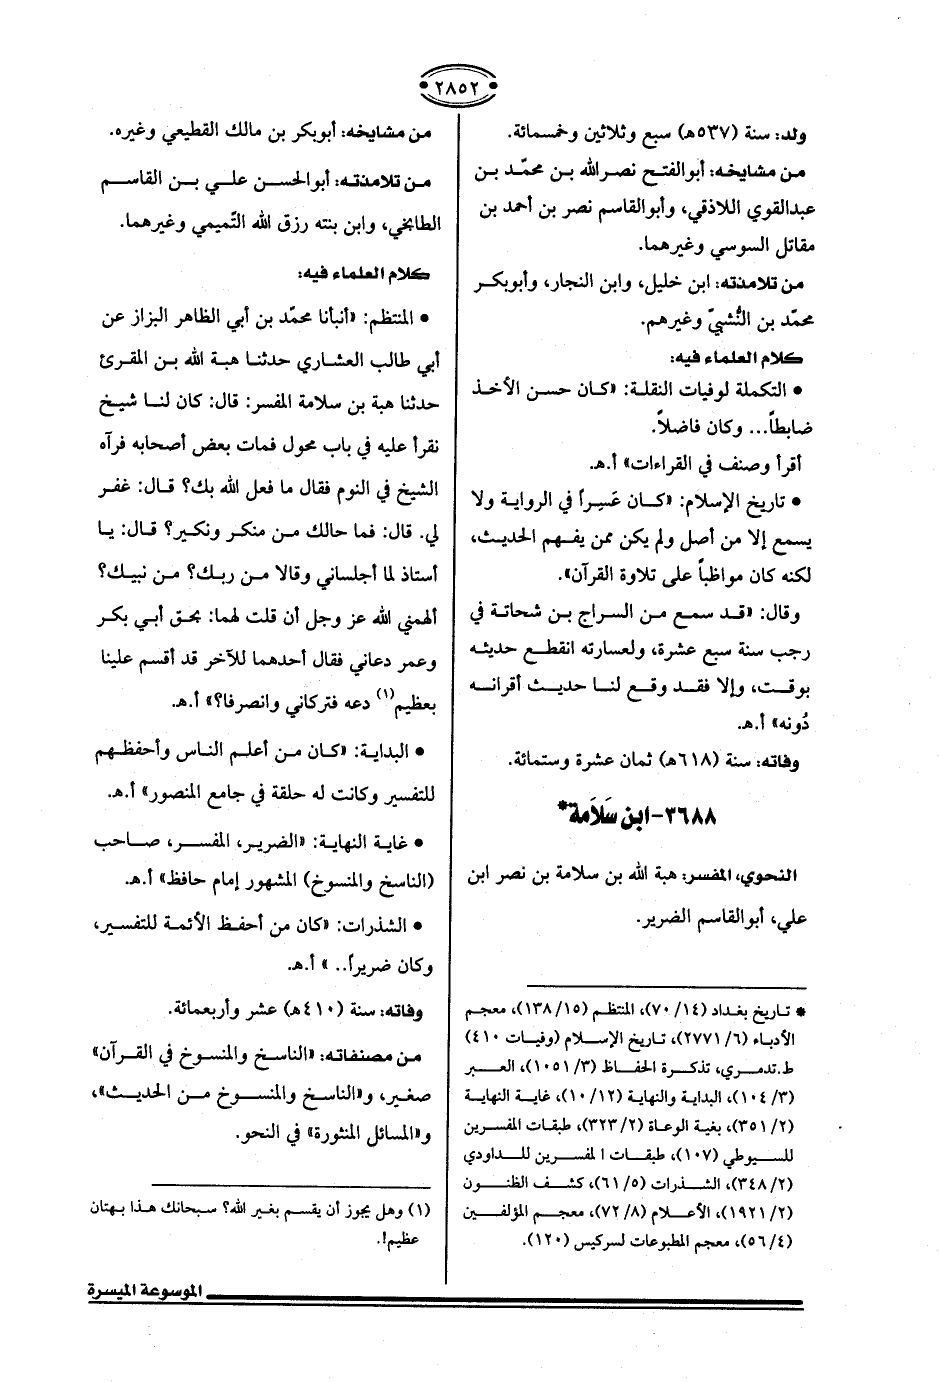 ٢٨٥٢
ولد: سنة (٥٣٧هـ) سبع وثلاثين وخمسمائة.
من مشايخه: أبوالفتح نصرالله بن محمّد بن
عبدالقوي اللاذقي، وأبوالقاسم نصر بن أحمد بن
مقاتل السوسي وغيرهما.
من تلامذته: ابن خليل، وابن النجار، وأبوبكر
محمّد بن النُّشبيّ وغيرهم.
كلام العلماء فيه:
• التكملة لوفيات النقلة: «كان حسن الأخذ
ضابطاً... وكان فاضلاً.
أقرأ وصنف في القراءات» أ.هـ.
• تاريخ الإسلام: «كان عَسِراً في الرواية ولا
يسمع إلا من أصل ولم يكن ممن يفهم الحديث،
لكنه كان مواظباً على تلاوة القرآن».
وقال: «قد سمع من السراج بن شحاتة في
رجب سنة سبع عشرة، ولعسارته انقطع حديثه
بوقت، وإلا فقد وقع لنا حديث أقرانه
دُونه» أ.هـ.
وفاته: سنة (٦١٨هـ) ثمان عشرة وستمائة.
٣٦٨٨-ابن سَلاَمة*
النحوي، المفسر: هبة الله بن سلامة بن نصر ابن
علي، أبوالقاسم الضرير.
* تاريخ بغداد (١٤/ ٧٠)، المنتظم (١٥/ ١٣٨)، معجم
الأدباء (٦/ ٢٧٧١)، تاريخ الإسلام (وفيات ٤١٠)
ط.تدمري، تذكرة الحفاظ (٣/ ١٠٥١)، العبر
(٣/ ١٠٤)، البداية والنهاية (١٢/ ١٠)، غاية النهاية
(٢/ ٣٥١)، بغية الوعاة (٢/ ٣٢٣)، طبقات المفسرين
للسيوطي (١٠٧)، طبقات المفسرين للداودي
(٢/ ٣٤٨)، الشذرات (٥/ ٦١)، كشف الظنون
(٢/ ١٩٢١)، الأعلام (٨/ ٧٢)، معجم المؤلفين
(٤/ ٥٦)، معجم المطبوعات لسركيس (١٢٠).
من مشايخه: أبوبكر بن مالك القطيعي وغيره.
من تلامذته: أبوالحسن علي بن القاسم
الطابخي، وابن بنته رزق الله التّميمي وغيرهما.
كلام العلماء فيه:
• المنتظم: «أنبأنا محمّد بن أبي الظاهر البزاز عن
أبي طالب العشاري حدثنا هبة الله بن المقرئ
حدثنا هبة بن سلامة المفسر: قال: كان لنا شيخ
نقرأ عليه في باب محول فمات بعض أصحابه فرآه
الشيخ في النوم فقال ما فعل الله بك؟ قال: غفر
لي. قال: فما حالك من منكر ونكير؟ قال: يا
أستاذ لما أجلساني وقالا من ربك؟ من نبيك؟
ألهمني الله عز وجل أن قلت لهما: بحق أبي بكر
وعمر دعاني فقال أحدهما للآخر قد أقسم علينا
بعظيم(١) دعه فتركاني وانصرفا؟» أ.هـ.
• البداية: «كان من أعلم الناس وأحفظهم
للتفسير وكانت له حلقة في جامع المنصور» أ.هـ.
• غاية النهاية: «الضرير، المفسر، صاحب
(الناسخ والمنسوخ) المشهور إمام حافظ» أ.هـ.
• الشذرات: «كان من أحفظ الأئمة للتفسير،
وكان ضريراً.. » أ.هـ.
وفاته: سنة (٤١٠هـ) عشر وأربعمائة.
من مصنفاته: «الناسخ والمنسوخ في القرآن»
صغير، و«الناسخ والمنسوخ من الحديث»،
و«المسائل المنثورة» في النحو.
(١) وهل يجوز أن يقسم بغير الله؟ سبحانك هذا بهتان
عظيم!.
الموسوعة الميسرة